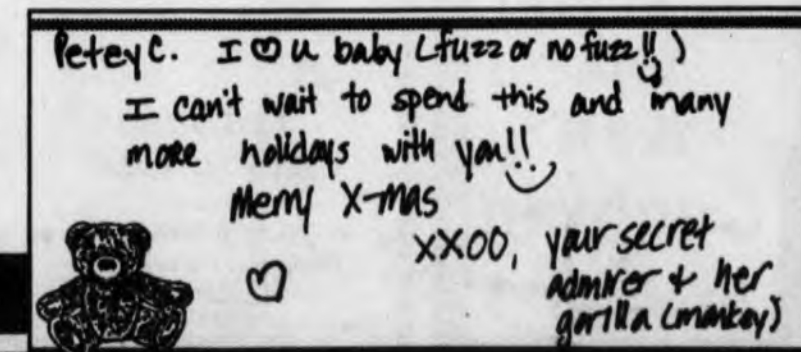 Petey C. I ♡ u baby (fuzz or no fuzz!!)
I can't wait to spend this and many
more holidays with you!!
Merry X-mas
XXOO, your secret
admirer & her
gorilla (monkey)